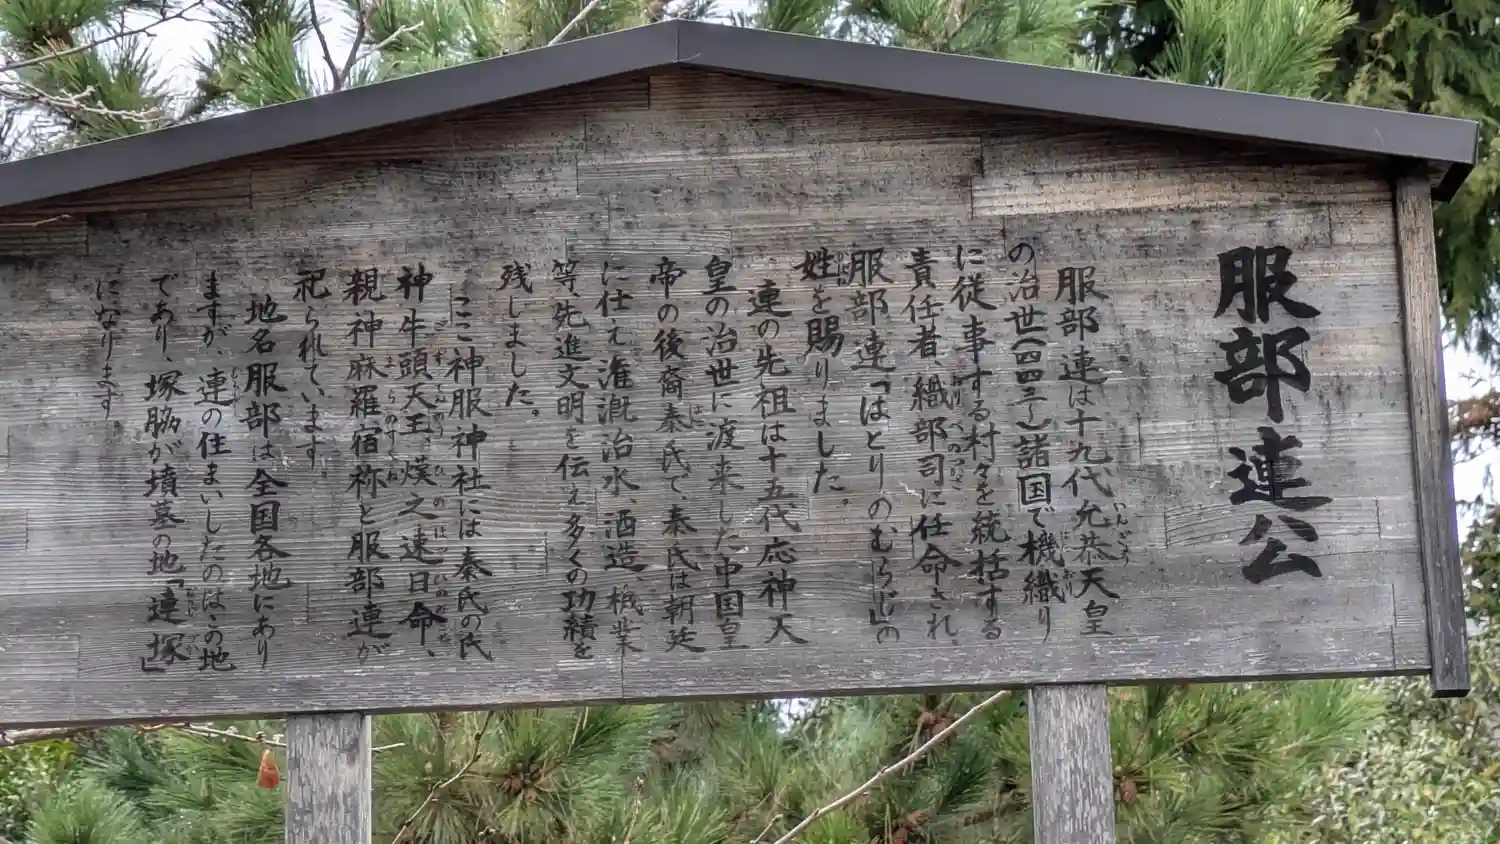 服部連公
服部連は十九代允恭天皇
の治世(四四三〜)諸国で機織り
に従事する村々を統括する
責任者、織部司に任命され、
服部連「はとりのむらじ」の
姓を賜りました。
連の先祖は十五代応神天
皇の治世に渡来した中国皇
帝の後裔秦氏で、秦氏は朝廷
に仕え潅漑治水、酒造、機業
等、先進文明を伝え多くの功績を
残しました。
ここ神服神社には秦氏の氏
神牛頭天王、熯之速日命、
親神麻羅宿祢と服部連が
祀られています
地名服部は全国各地にあり
ますが、連の住まいしたのはこの地
であり、塚脇が墳墓の地「連塚」
になります